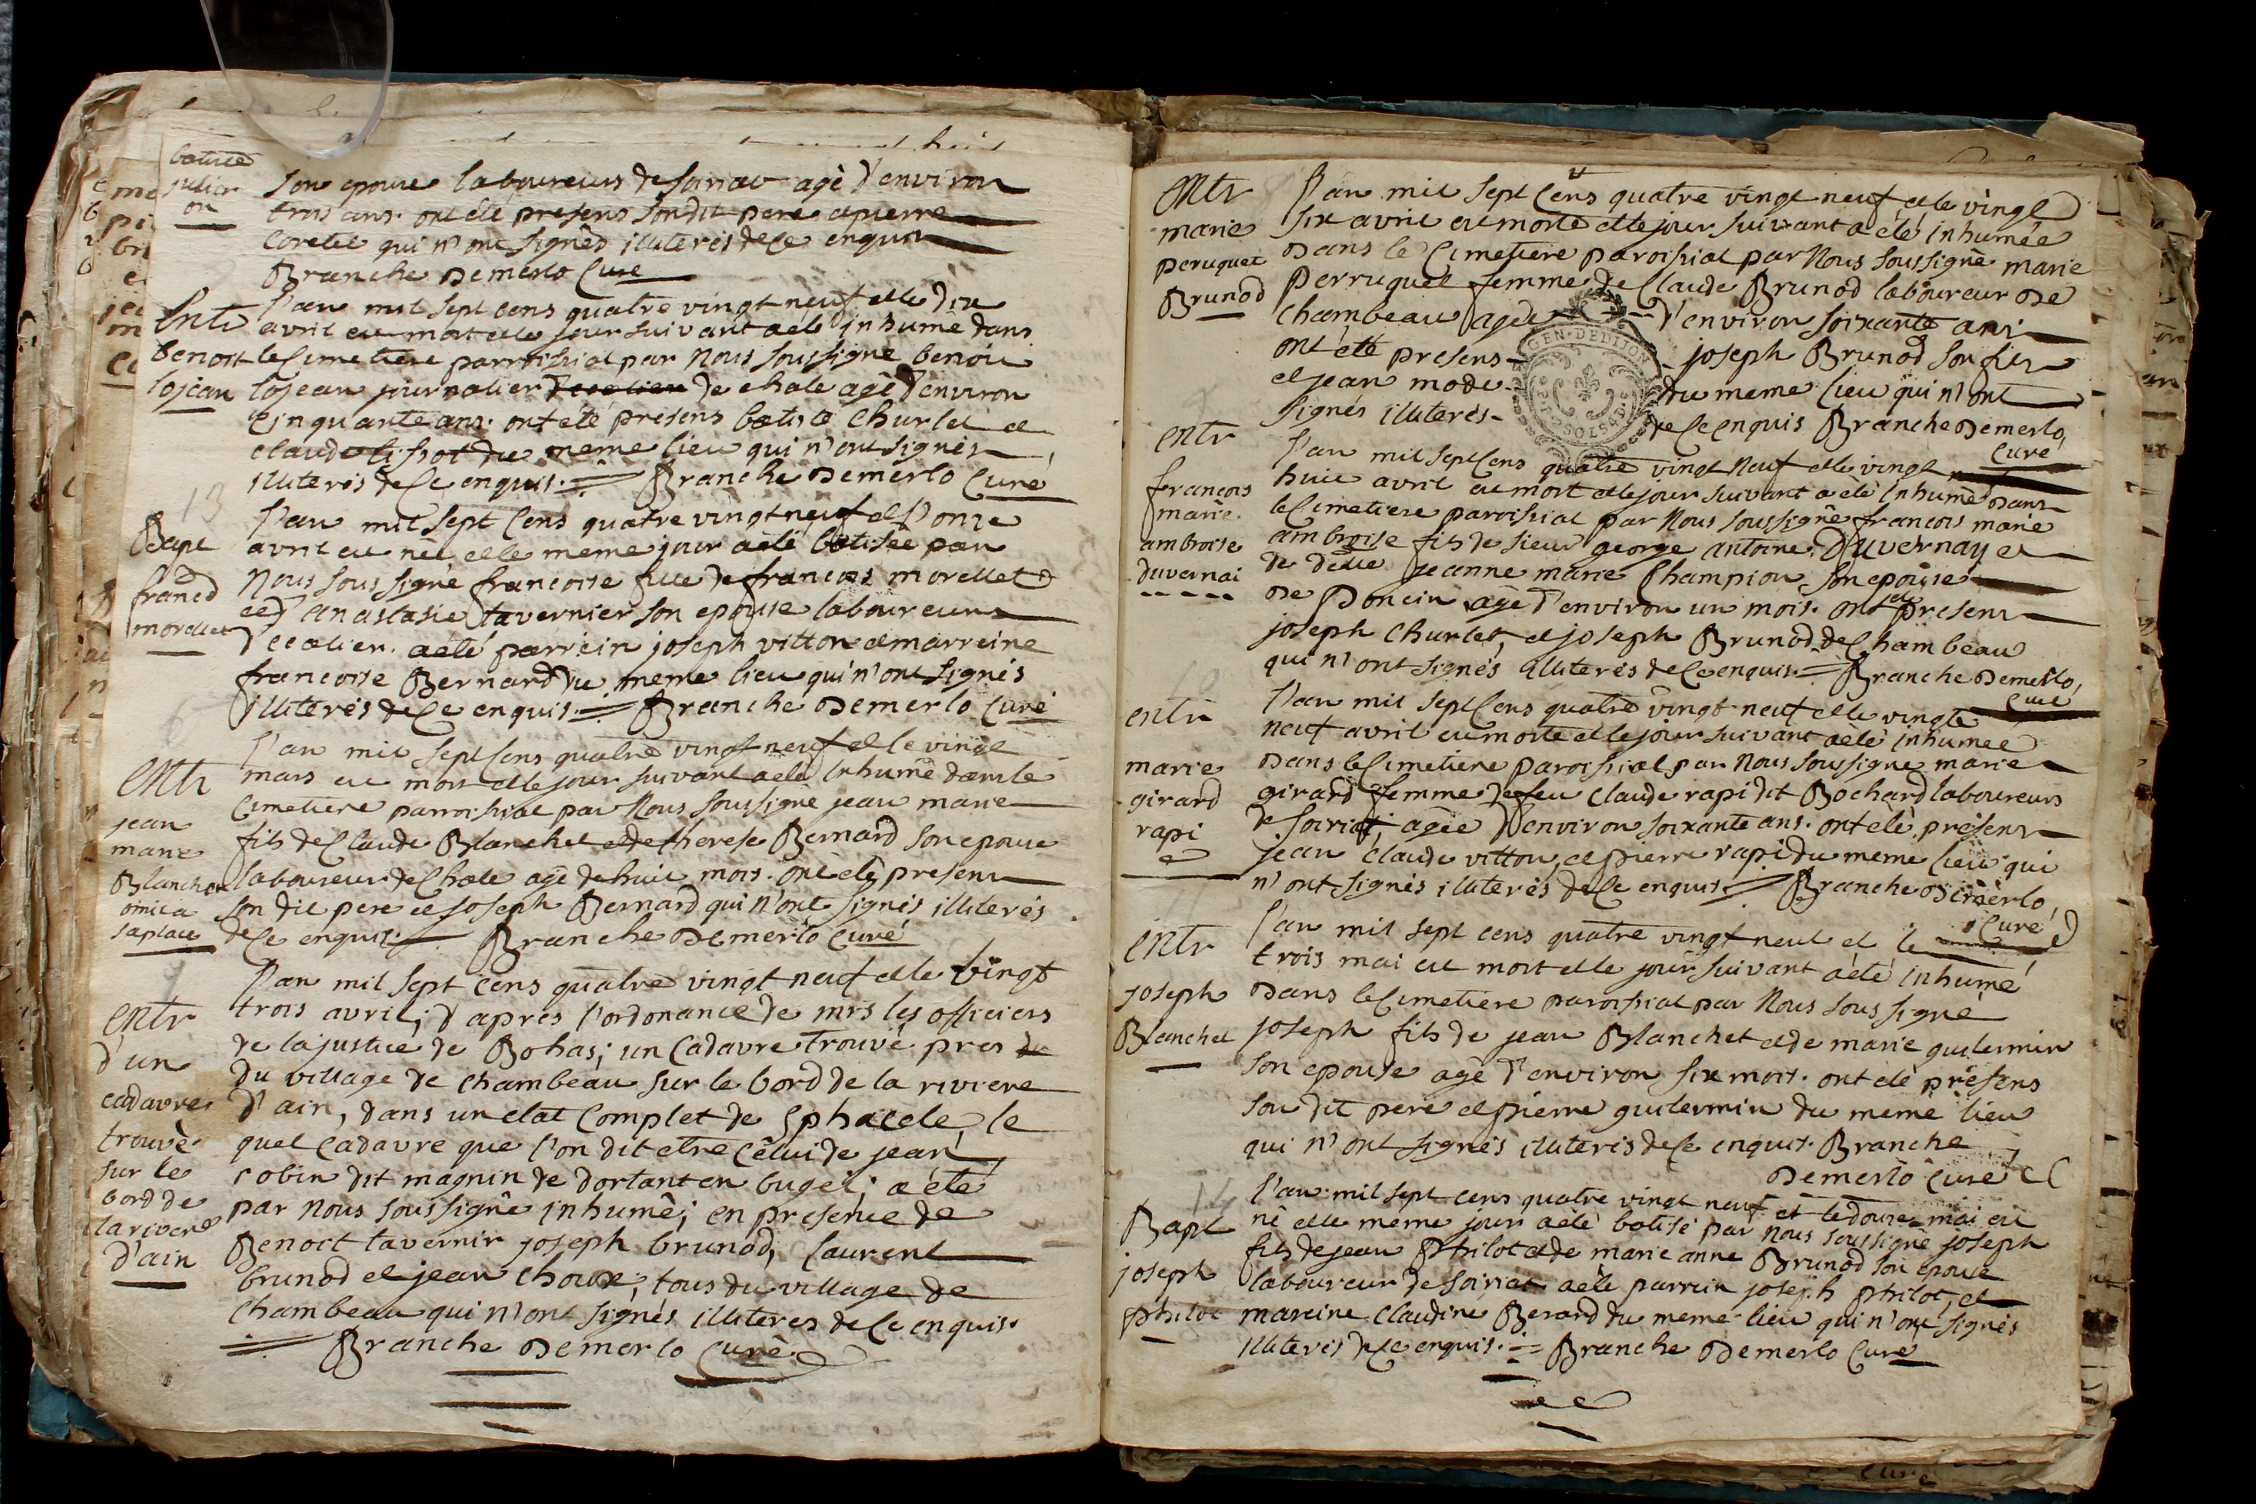 batiste
julien
on
son epouse laboureurs de soriat agè d'environ
trois ans. ont ètè presens sondit pere et pierre
coretel qui n'ont signès illiterès de ce enquis
Branche Demerlo Curé
Entr
benoit
lojean
l'an mil sept cens quatre vingt neuf et le dix
avril est mort et le jour suivant a ètè inhumè dans
le Cimetiere parroissial par Nous soussignè benoit
lojean journalier de chale agè d'environ
Cinquante ans. ont étè presens batiste Churlet et
claude tissot du meme lieu qui n'ont signès
illiterès de Ce enquis. Branche Demerlo Curé
13
Bapt
francd
morellet
l'an mil sept Cens quatre vingt neuf et l'onze
avril est nèe et le meme jour a étè batisèe par
Nous soussignè francoise fille de francois morellet
et d'anastasie tavernier son epouse laboureurs
d'ecolier. a ètè parrein joseph vitton et marreine
francoise Bernard du meme lieu qui n'ont signès
illiterès de Ce enquis. Branche Demerlo Curé
Entr
jean
marie
Blanchet
omis a
sa place
l'an mil sept Cens quatre vingt neuf et le vingt
mars est mort et le jour suivant a ètè inhumè dans le
Cimetiere parroissial par Nous soussignè jean marie
fils de Claude Blanchet et de therese Bernard son epouse
laboureurs de Chale agè de huit mois. ont ètè presens
son dit pere et joseph Bernard qui n'ont signès illiterès
de Ce enquis. Branche Demerlo Curé
Entr
d'un
cadavre
trouvè
sur le
bord de
la riviere
d'ain
l'an mil sept cens quatre vingt neuf et le vingt
trois avril; d'aprés l'ordonance de mrs les officiers
de la justice de Bohas; un Cadavre trouvé pres
du village de chambeau sur le bord de la riviere
d'ain, dans un etat Complet de Sphacele, le
quel Cadavre que l'on dit etre Celui de jean
robin dit magnin de dortant en bugei; a étè
par Nous soussignè inhumè; en presence de
Benoit tavernir joseph brunod, laurent
brunod et jean choux, tous du village de
Chambeau qui n'ont signés illiteres de Ce enquis.
Branche Demerlo Curè
Entr
marie
peruquet
Brunod
l'an mil sept Cens quatre vingt neuf et le vingt
six avril est morte et le jour suivant a étè inhumèe
Dans le Cimetiere paroissial par Nous soussignè marie
perruquet femme de Claude Brunod laboureur De
Chambeau agèe d'environ soixante ans
ont étè presens joseph Brunod son fils
et jean mode du meme lieu qui n'ont
signès illiterès de Ce enquis Branche Demerlo
Curé
GEN. DE DIJON
Entr
francois
marie
ambroise
duvernai
l'an mil sept Cens quatre vingt neuf et le vingt
huit avril est mort et le jour suivant a étè inhumè Dans
le Cimetiere paroissial par Nous soussignè francois marie
ambroise fils de sieur george antoine Duvernay et
de delle jeanne marie Champion son epouse
De Poncin agè d'environ un mois. ont ete presens
joseph Churlet, et joseph Brunod de Chambeau
qui n'ont signès illiterès de Ce enquis. Branche Demerlo,
Curé
Entr
marie
girard
rapi
l'an mil sept Cens quatre vingt neuf et le vingt
neuf avril est morte et le jour suivant a étè inhumèe
Dans le Cimetiere paroissial par Nous soussignè marie
girard femme de feu Claude rapi dit Bochard laboureurs
de soiriat; agèe d'environ soixante ans. ont étè présens
jean Claude vitton et pierre rapi du meme lieu qui
n'ont signès illiterès de Ce enquis. Branche Demerlo,
Curé
Entr
joseph
Blanchet
l'an mil sept cens quatre vingt neuf et le
trois mai est mort et le jour suivant a étè inhumé
Dans le Cimetiere paroissial par Nous soussignè
joseph fils de jean Blanchet et de marie guilermin
son epouse agè d'environ six mois. ont étè présens
son dit pere et pierre guilermin du meme lieu
qui n'ont signès illiteris de Ce enquis. Branche
Demerlo Curé
14
Bapt
joseph
philot
l'an mil sept cens quatre vingt neuf et le douze mai est
né et le meme jour a étè batisé par Nous soussignè joseph
fils de jean philot et de marie anne Brunod son epouse
laboureur de soiriat a étè parrein joseph philot, et
mareine Claudine Berard du meme lieu qui n'ont signès
illiteris de Ce enquis. Branche Demerlo Curé